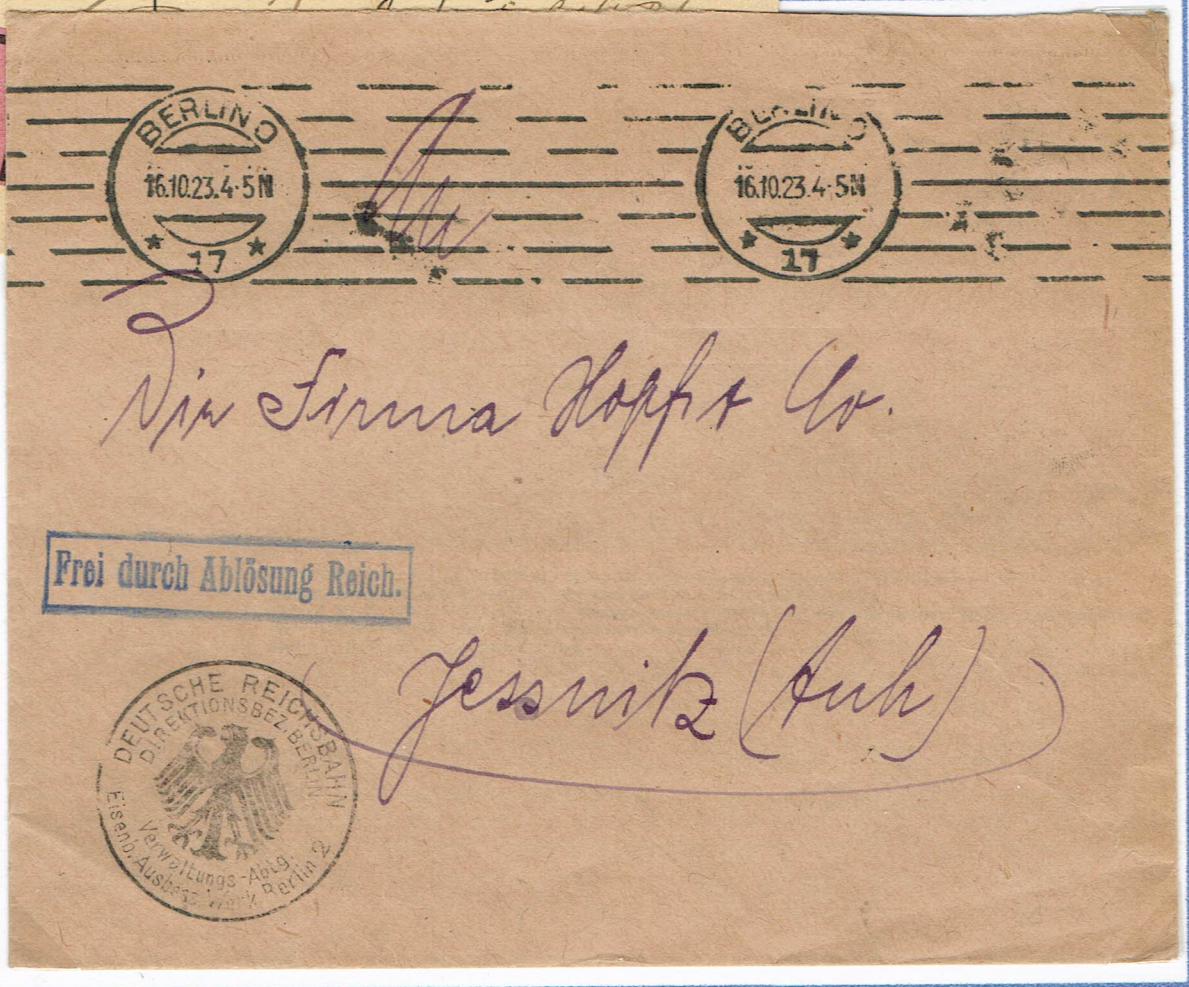 BERLIN O
16.10.23.4-5N
* 17 *
BERLIN O
16.10.23.4-5N
* 17 *
An
Die Firma Hopf & Co.
Frei durch Ablösung Reich.
Jessnitz (Anh)
DEUTSCHE REICHSBAHN
DIREKTIONSBEZ. BERLIN
Verwaltungs-Abtg.
Eisenb. Ausbess. Werk Berlin 2